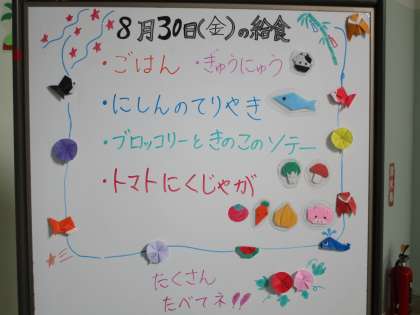 8月30日(金)の給食
・ごはん ・ぎゅうにゅう
・にしんのてりやき
・ブロッコリーときのこのソテー
・トマトにくじゃが
たくさん
たべてネ!!